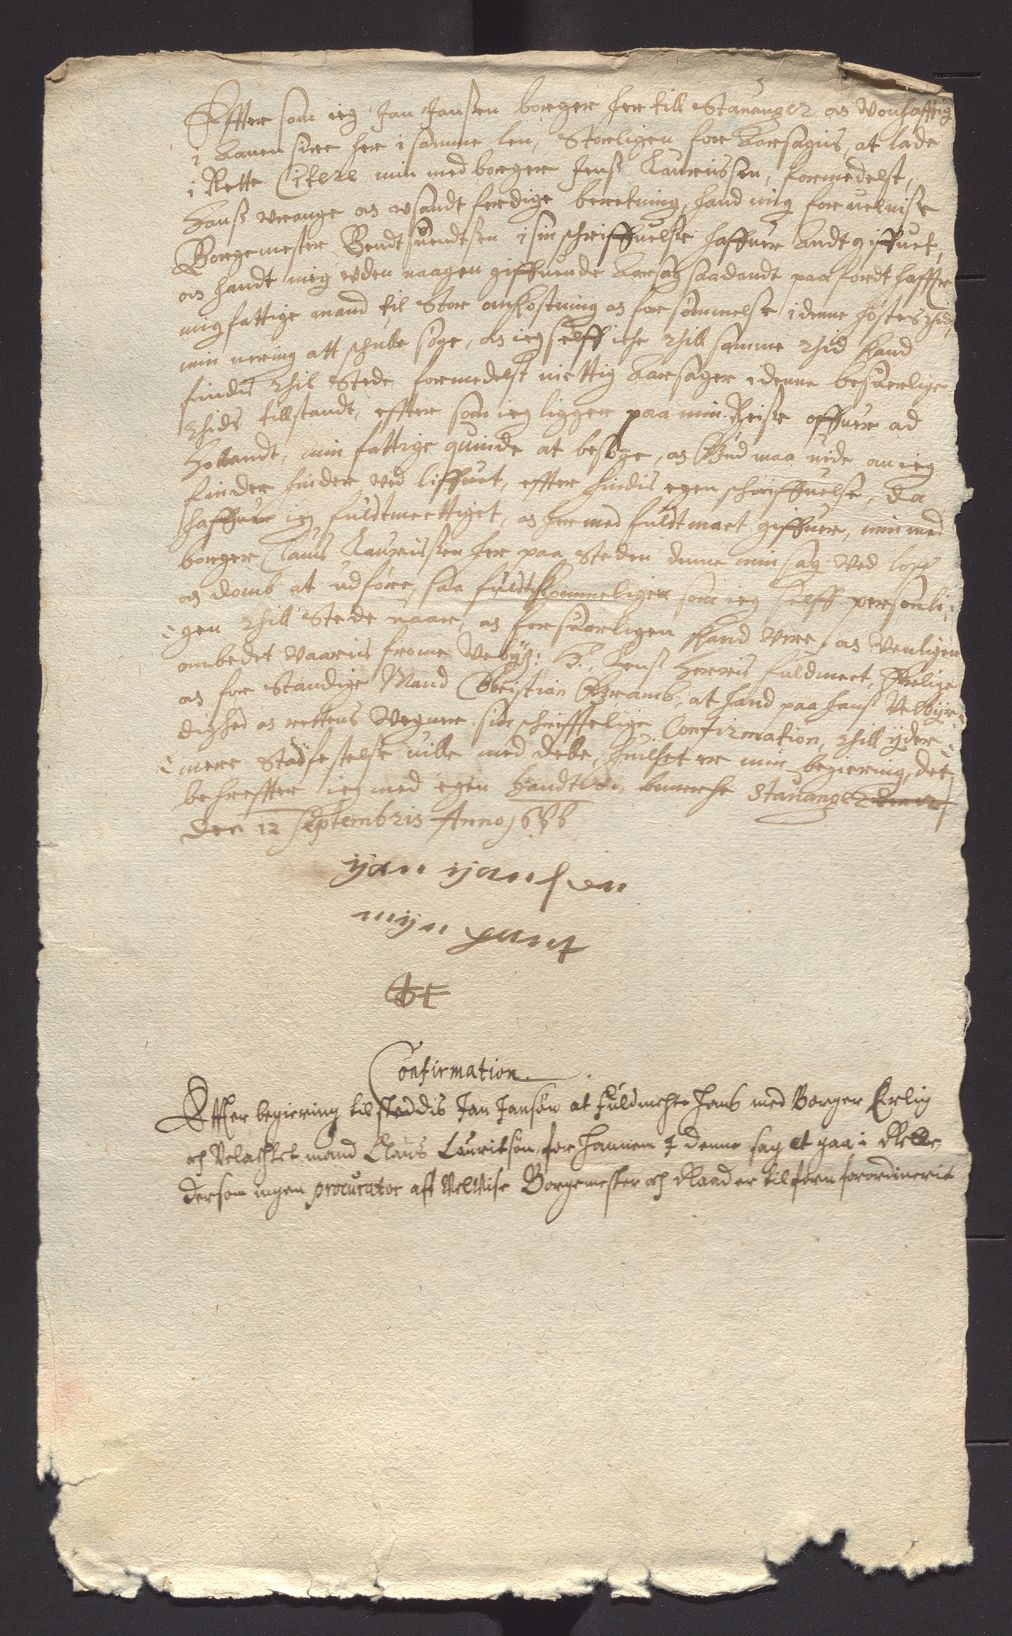 Effter som ieg Jan Janssen borger her till Stauanger oc Vonhafftig
i samme len, Storligen for aarsagis, at lade
i Rette Citere min medborger Jens Lauridssen, formedelst,
hans vrange oc vsandtferdige beretning, hand mig for
Borgemester Bendt Suendtsen i sin schriffuelse haffuer andtgiffuet,
oc handt mig vden naagen giffuende aarsag saadandt paafordt haffuer
mig fattige mand til Stor onkostning oc forsømmelse i denne høstes
min nering att schulle søge, oc ieg selff iche thill samme thid kand
findis thil Stede formedelst nøttig aarsager i denne besuerlige
thids tillstandt, effter som ieg ligger paa min Reise offuer ad
Hollandt, min fattige quinde at besøge, oc Gud maa uide om ieg
finder hinder ved liffuet, effter hindis egen schriffuelse, da
haffuer ieg fuldmectiget, oc hermed fuldmact giffuer, min med
borger Claus Lauridssen her paa Steden denne min sag ved
oc domb at udføre, saa fuldkommeligen som ieg selff personli
gen thill Stede vaar, oc forsuarligen kand vere, oc Venligen
ombedet Vaaris fromme Velbyr: H: Lens Herris fuldmect,
oc forstandige Mand Christian at hand paa hans Velbyr
dighed oc rettens Vegne sin schrifftelige Confirmation, thill yder
mere Stadfestelse uille med dele, huilket er min begiering, det
bekreffter ieg med egen handt Stauanger
den 12 Septembris Anno
ijan ijansen
mijn hant
Confirmation.
Effter begiering tilsteddis Jan Jansøn at fuldmechte hans med Borger Erlig
och Velachtet mand Claus Lauritsøn for hannem i denne sag at gaa i Rette
dersom ingen procurator aff VelVise Borgemester och Raad er tilforn forordinerit